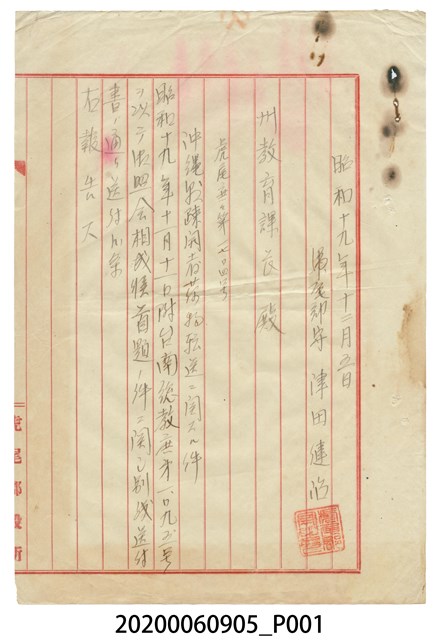 昭和十九年十二月五日
虎尾郡守 津田
州教育課長殿
虎尾
沖縄県疎開者荷物輸送ニ関スル件
昭和十九年十一月十一日附台南総教庶第一〇九
ヲ以テ御照会相成候首題ノ件ニ関シ別紙送付
書ノ通リ送付
右報告ス
虎尾郡役所
20200060905_P001